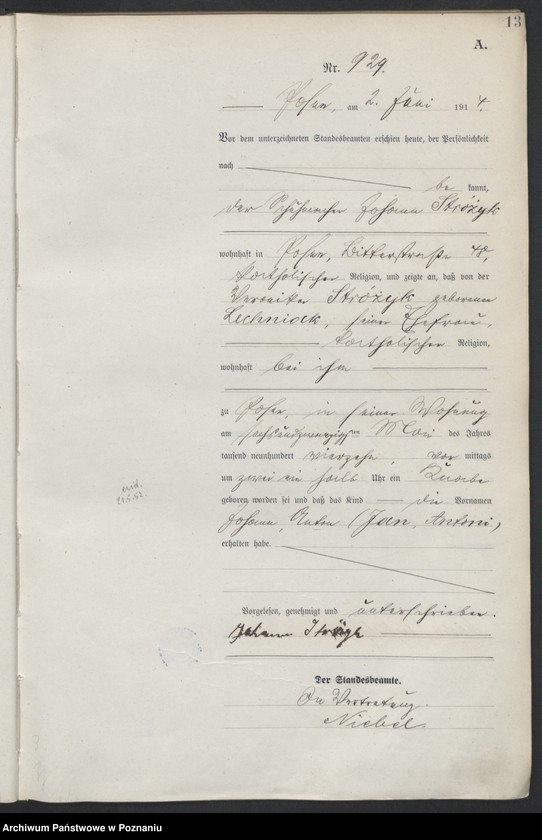 13
A.
Nr. 929.
Posen, am 2. Juni 1914.
Vor dem unterzeichneten Standesbeamten erschien heute, der Persönlichkeit
nach
be kannt,
der Schuhmacher Johann Stróżyk
wohnhaft in Posen, 48,
katholischer Religion, und zeigte an, daß von der
Veronika Stróżyk geborenen
Lechniak, seiner Ehefrau,
katholischer Religion,
wohnhaft bei ihm
zu Posen, in seiner Wohnung
am sechsundzwanzigsten Mai des Jahres
tausend neunhundert vierzehn, vor mittags
um zwei ein halb Uhr ein Knabe
geboren worden sei und daß das Kind die Vornamen
Johann, Anton (Jan, Antoni)
erhalten habe.
Vorgelesen, genehmigt und unterschrieben.
Johann Stróżyk
Der Standesbeamte.
In Vertretung.
Niebel
Archiwum Państwowe w Poznaniu